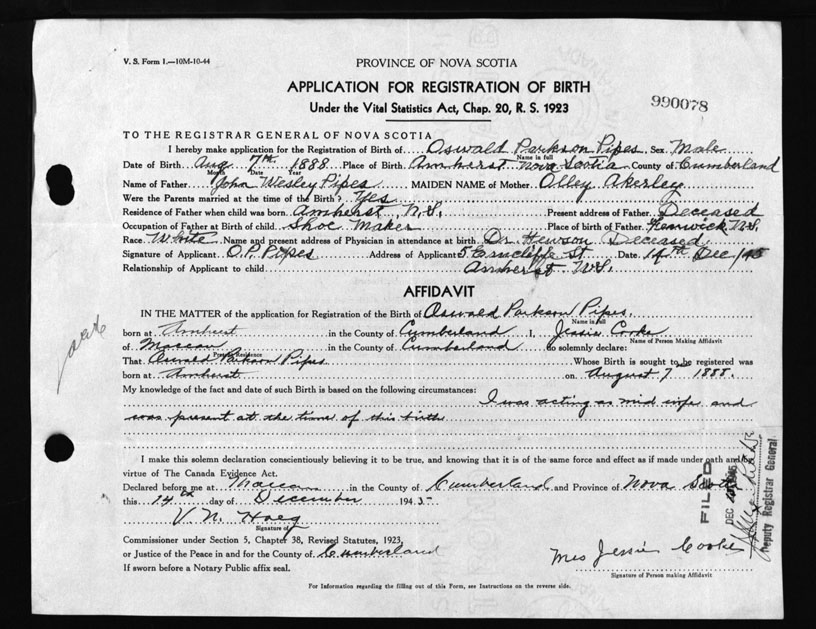 V. S. Form 1.—10M-10-44
PROVINCE OF NOVA SCOTIA
APPLICATION FOR REGISTRATION OF BIRTH
Under the Vital Statistics Act, Chap. 20, R. S. 1923
990078
TO THE REGISTRAR GENERAL OF NOVA SCOTIA
I hereby make application for the Registration of Birth of Oswald Parkson Pipes, Sex Male
Name in full
Date of Birth Aug 7th 1888 Place of Birth Amherst Nova Scotia County of Cumberland
Month Date Year
Name of Father John Wesley Pipes MAIDEN NAME of Mother Olley Akerley
Were the Parents married at the time of the Birth? Yes
Residence of Father when child was born Amherst, N.S. Present address of Father Deceased
Occupation of Father at Birth of child Shoe Maker Place of birth of Father Fenwick N.S.
Race White Name and present address of Physician in attendance at birth Dr Hewson Deceased
Signature of Applicant O.P. Pipes Address of Applicant 5 St Date 14th Dec/45
Relationship of Applicant to child Amherst N.S.
AFFIDAVIT
IN THE MATTER of the application for Registration of the Birth of Oswald Parkson Pipes.
Name in full
born at Amherst in the County of Cumberland I, Jessie Cooke
Name of Person Making Affidavit
of Maccan in the County of Cumberland do solemnly declare:
Present Residence
That Oswald Parkson Pipes Whose Birth is sought to be registered was
born at Amherst on August 7th 1888.
My knowledge of the fact and date of such Birth is based on the following circumstances:
I was acting as mid wife and
was present at the time of this birth
I make this solemn declaration conscientiously believing it to be true, and knowing that it is of the same force and effect as if made under oath and by
virtue of The Canada Evidence Act.
Declared before me at Maccan in the County of Cumberland and Province of Nova Scotia
this 14th day of December 1945
V. N. Hoeg
Signature of
Commissioner under Section 5, Chapter 38, Revised Statutes, 1923,
or Justice of the Peace in and for the County of Cumberland
If sworn before a Notary Public affix seal.
Mrs Jessie Cooke
Signature of Person making Affidavit
For Information regarding the filling out of this Form, see Instructions on the reverse side.
FILED
DEC 1945
Deputy Registrar General